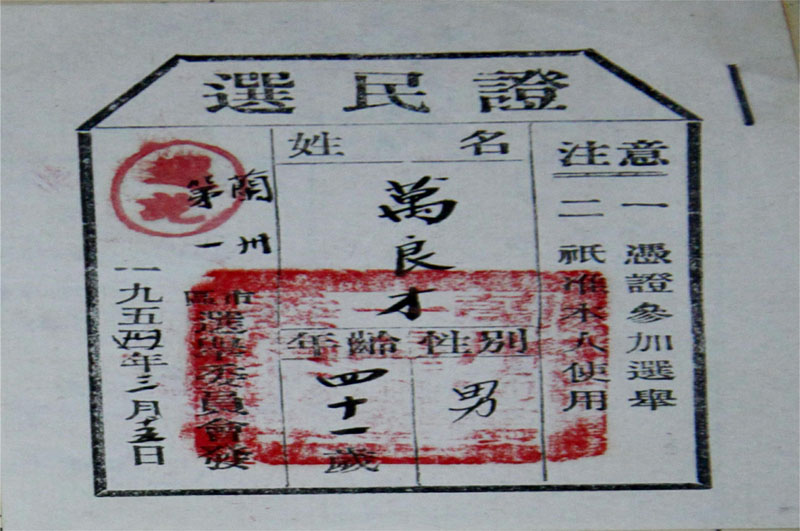 選民證
注意
一 憑證參加選舉
二 祇准本人使用
姓名
萬良才
性別
男
年齡
四十一歲
蘭州市
第一區
選舉委員會發
一九五四年三月十五日